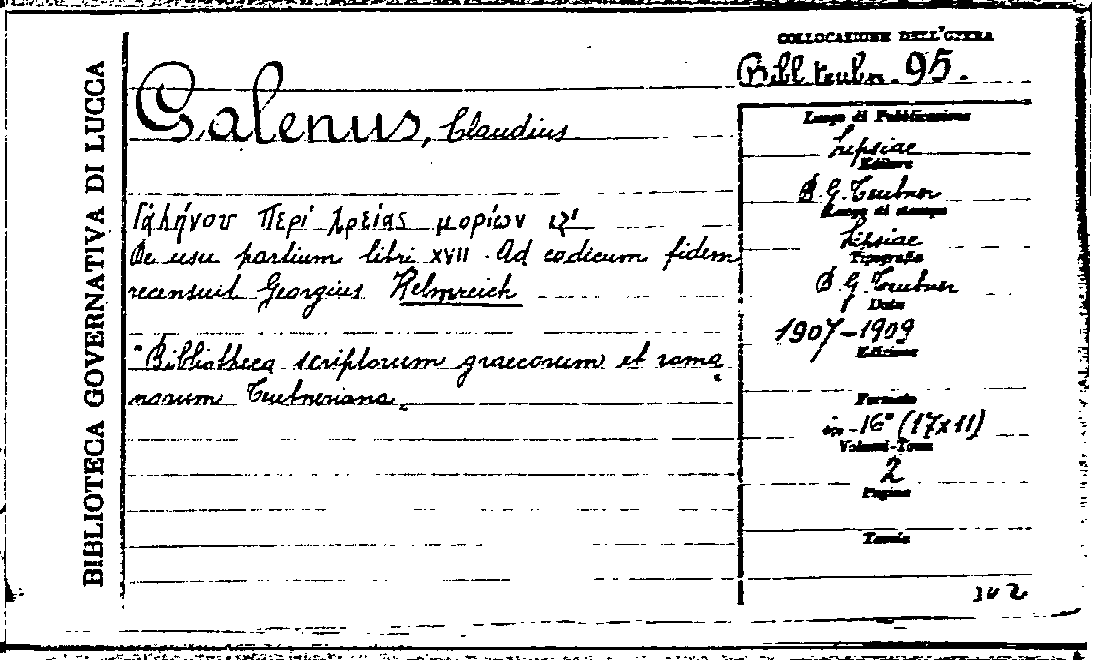 BIBLIOTECA GOVERNATIVA DI LUCCA
COLLOCAZIONE DELL'OPERA
Bibl. teubn. 95.
Galenus, Claudius
Γαλήνου Περὶ χρείας μορίων ιζ'
De usu partium libri XVII. Ad codicum fidem
recensuit Georgius Helmreich
"Bibliotheca scriptorum graecorum et roma
norum Teubneriana„
Luogo di Pubblicazione
Lipsiae
Editore
B. G. Teubner
Luogo di stampa
Lipsiae
Tipografia
B. G. Teubner
Data
1907-1909
Edizione
Formato
in-16° (17x11)
Volumi-Tomi
2
Pagine
Tavole